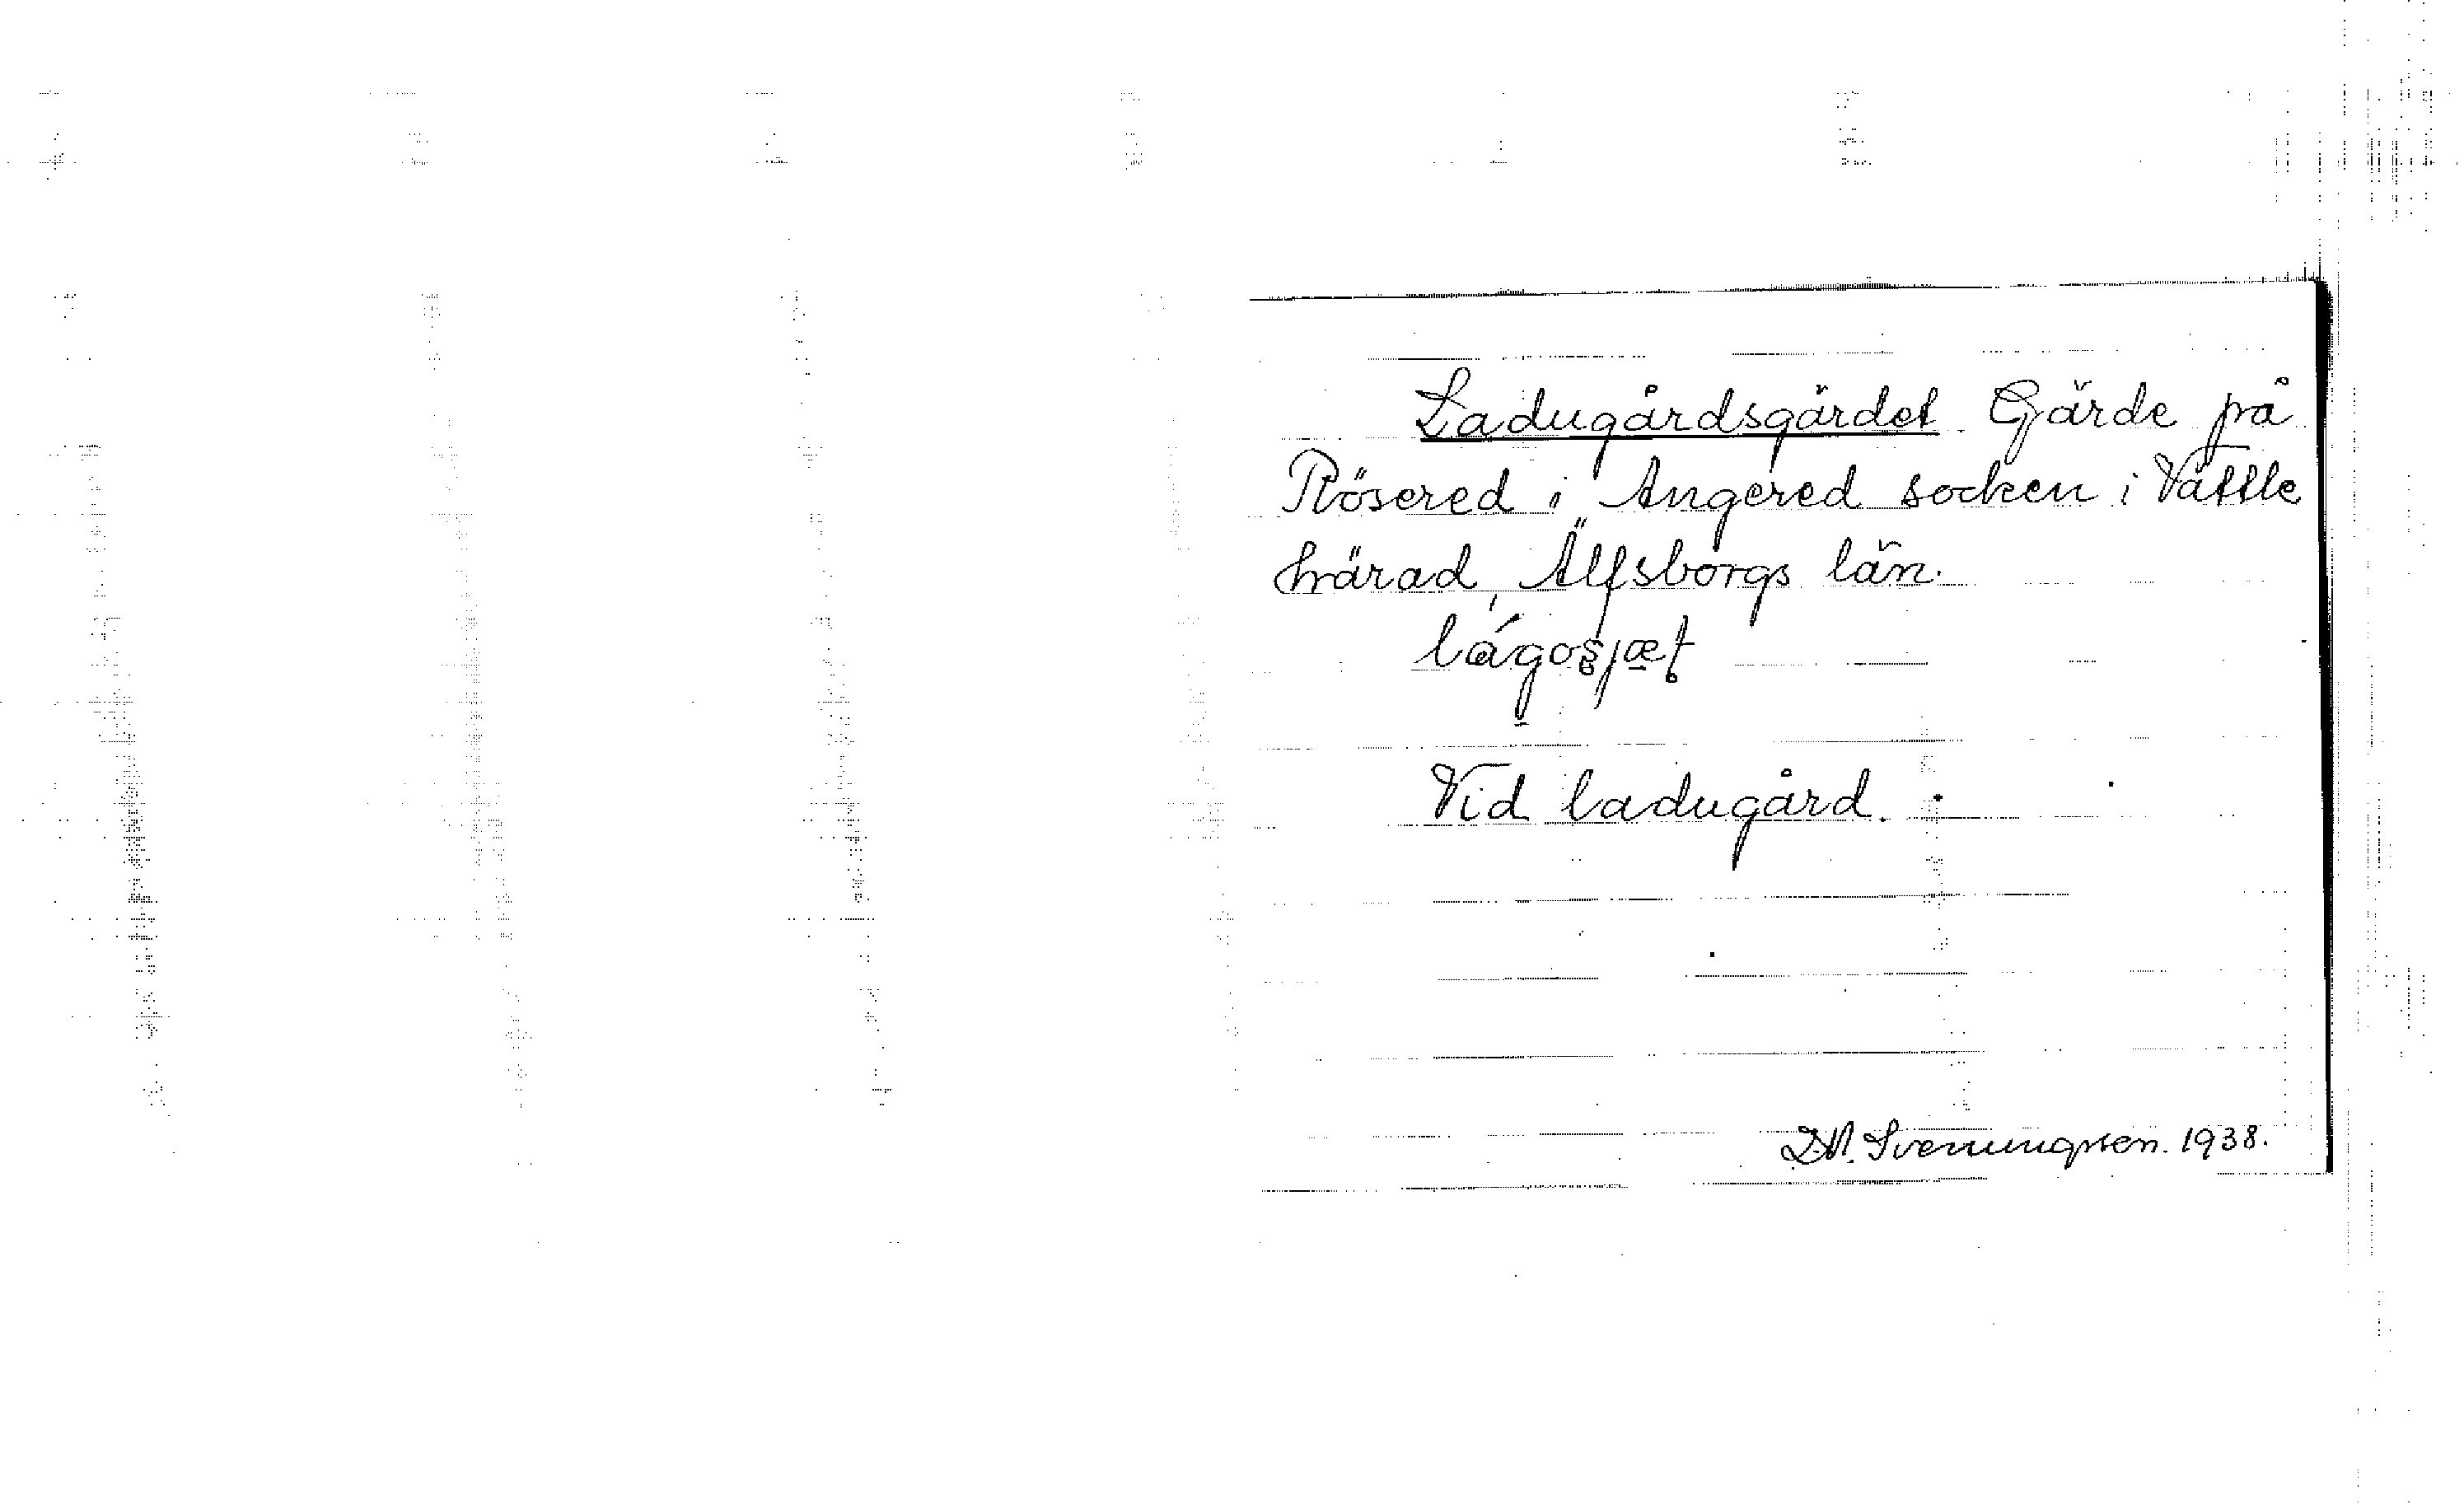 Ladugårdsgärdet Gärde på
Rösered i Angered socken i Vättle
härad, Älfsborgs län.
lágosjæt
Vid ladugård.
D.N. Svenungsson. 1938.